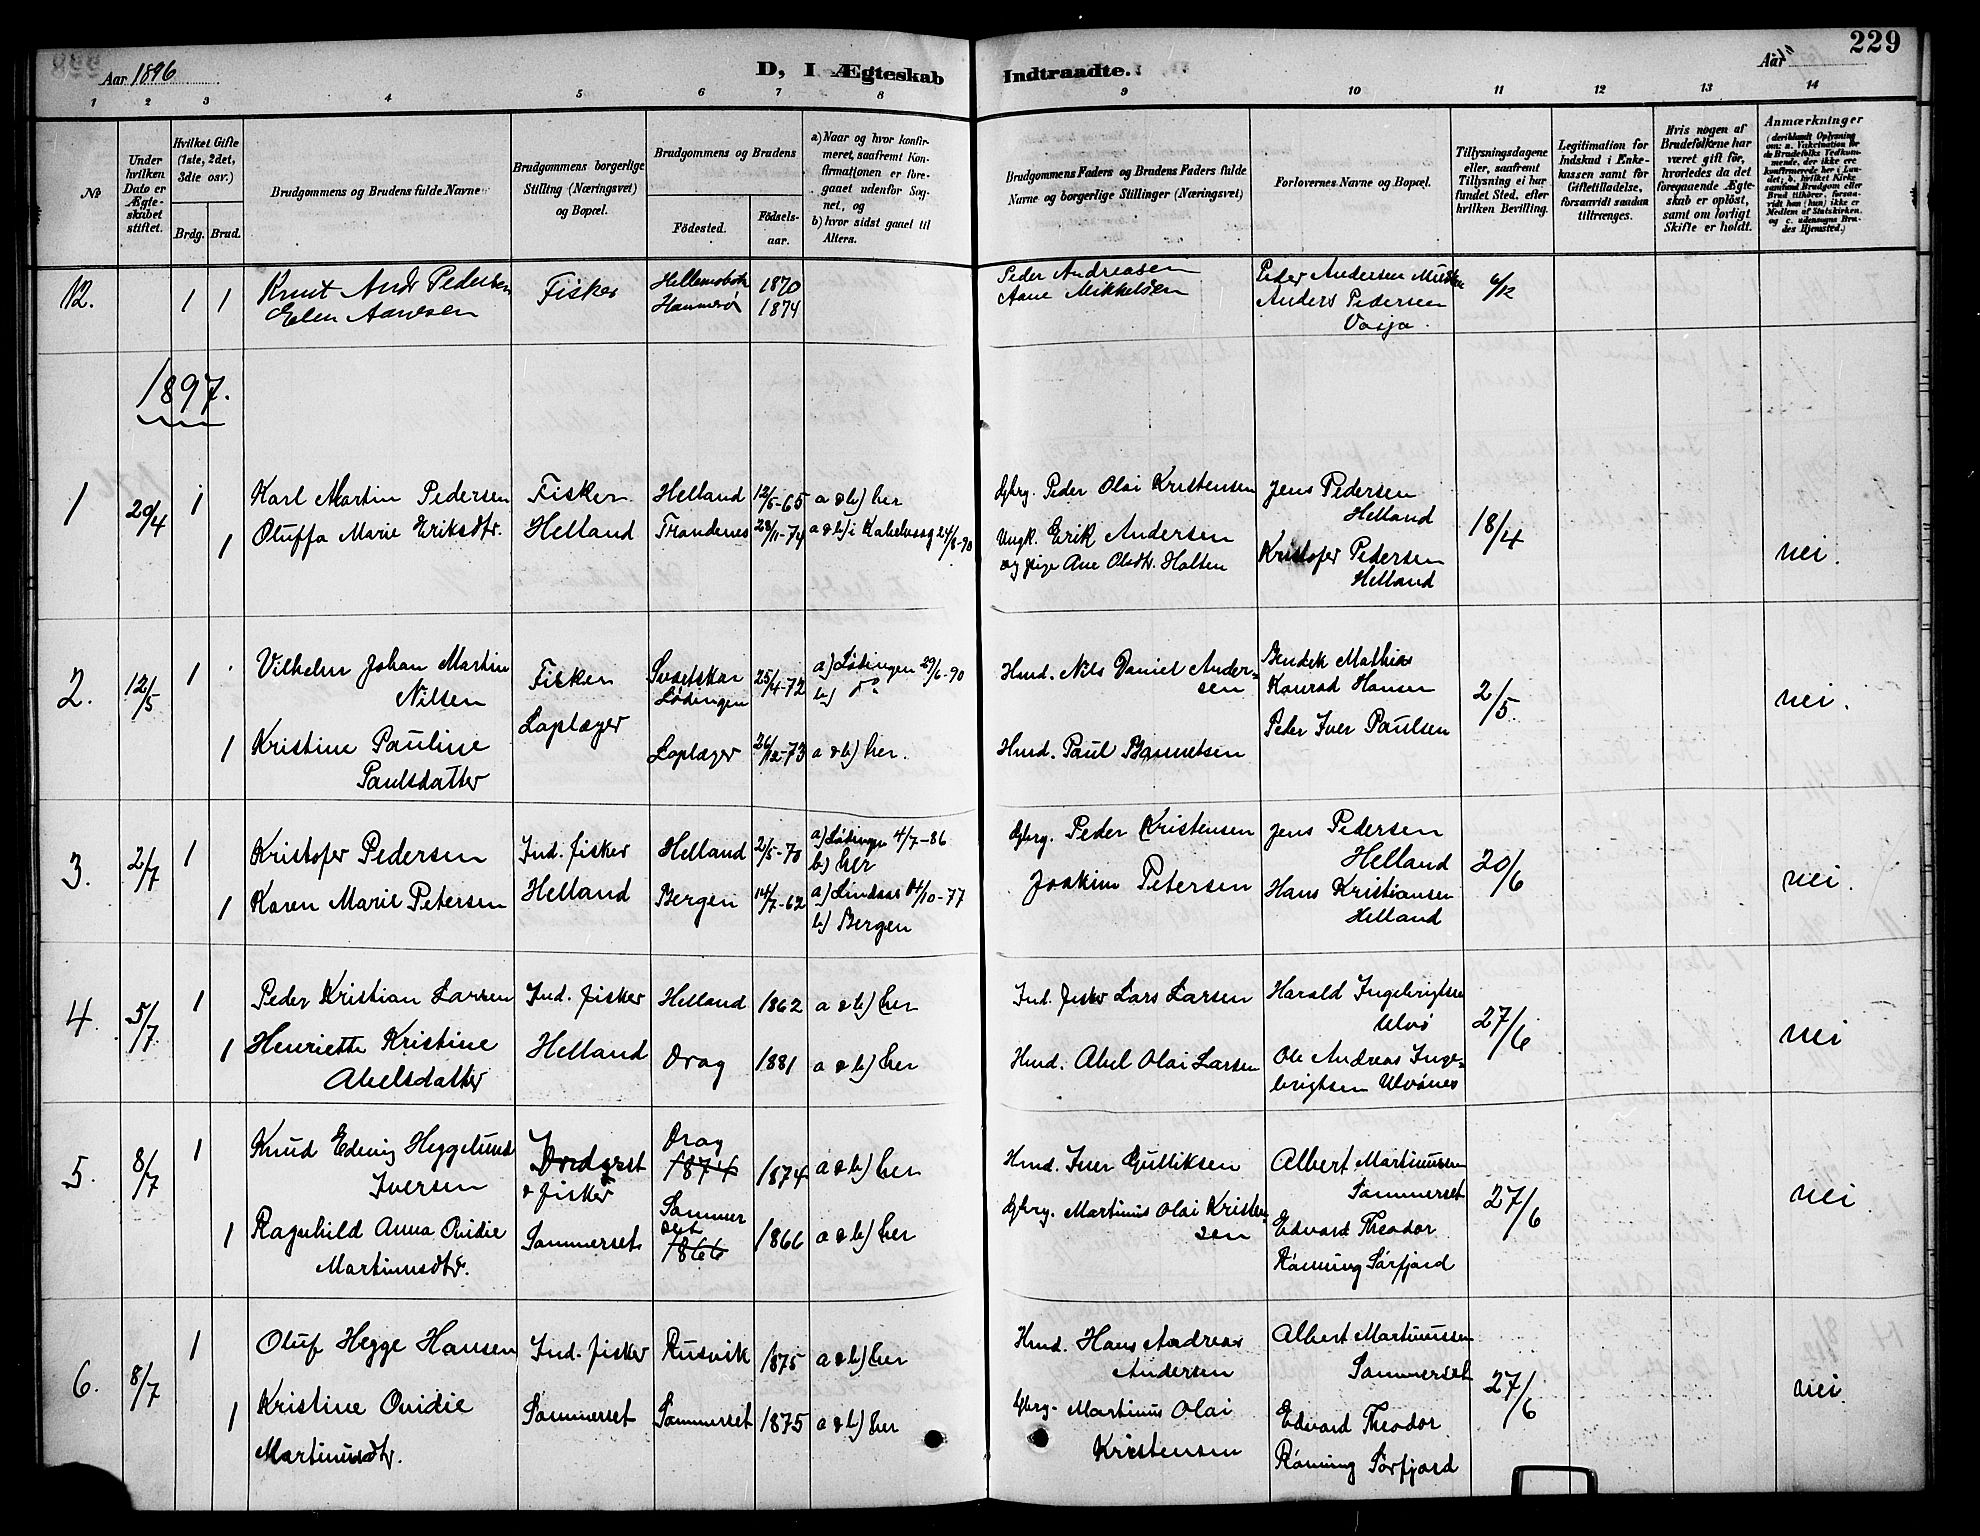 229
Aar 1896
D, I Ægteskab Indtraadte.
Aar
1 2 3 4 5 6 7 8 9 10 11 12 13 14
No
Under hvilken Dato er Ægteskabet stiftet.
Hvilket Gifte (1ste, 2det, 3die osv.)
Brdg. Brud.
Brudgommens og Brudens fulde Navne
Brudgommens borgerlige Stilling (Næringsvei) og Bopæl.
Brudgommens og Brudens
Fødested.
Fødselsaar.
a) Naar og hvor konfirmeret, saafremt Konfirmationen er foregaaet udenfor Sognet, og
b) hvor sidst gaaet til Alters.
Brudgommens Faders og Brudens Faders fulde Navne og borgerlige Stillinger (Næringsvei)
Forlovernes Navne og Bopæl.
Tillysningsdagene eller, saafremt Tillysning ei har fundet Sted, efter hvilken Bevilling.
Legitimation for Indskud i Enkekassen samt for Giftetilladelse, forsaavidt saadan tiltrænges.
Hvis nogen af Brudefolkene har været gift før, hvorledes da det foregaaende Ægteskab er opløst, samt om lovligt Skifte er holdt.
Anmærkninger
12. 1 1 Knut Andr Pedersen Fisker 1870 Peder Andreasen Peder Andersen 6/12
Elen Aanesen Hammerø 1874 Aane Mikkelsen Anders Pedersen
Vaija.
1897.
1 29/4 1 Karl Martin Pedersen Fisker Helland 12/5-65 a & b) her Gbrg. Peder Olai Kristensen Jens Pedersen
Helland
1 Oluffa Marie Eriksdtr. Helland Trondenes 28/11-74 a & b) i Kabelvaag 24/8-90 Ungk. Erik Andersen 18/4
og pige Ane Olsdtr. Holten Kristofer Pedersen nei.
Helland
2. 12/5 1 Vilhelm Johan Martin Fisker Svartskar 25/4-72 a) Lødingen 29/6-90 Hmd. Nils Daniel Ander- Bendik Mathias
Nilsen Lødingen b) do sen Konrad Hansen 2/5 nei.
Laplæger Peder Iver Paulsen
1 Kristine Pauline Laplæger 26/12-73 a & b) her. Hmd. Paul
Paulsdatter
3. 2/7 1 Kristofer Pedersen Ind. fisker Helland 2/5-70 a) Lødingen 4/7-86 Gbrg. Peder Kristensen Jens Pedersen
b) her Helland 20/6
1 Karen Marie Petersen Helland Bergen 14/7-62 a) Lindaas 14/10-77 Joakim Petersen Hans Kristiansen nei.
b) Bergen Helland
4. 5/7 1 Peder Kristian Larsen Ind. fisker Helland 1862 a & b) her Ind. fisker Lars Larsen Harald Ingebrigtsen
Ulvø 27/6
1 Henriette Kristine Helland Drag 1881 a & b) her Hmd. Abel Olai Larsen Ole Andreas Inge- nei
Abelsdatter brigtsen Ulvønes
5. 8/7 1 Knud Edevig Heggelund Drag 1874 a & b) her Hmd. Iver Gulliksen Albert Martinussen
Iversen & fisker 1874 Sommerset
1 Ragnhild Anna Ovidie Sommerset Sommerset 1866 a & b) her Gbrg. Martinus Olai Kristen- Edvard Theodor 27/6 nei
Martinusdtr. 1866 sen Rønning Sørfjord
6. 8/7 1 Oluf Hegge Hansen Ind. fisker Rusvik 1875 a & b) her Hmd. Hans Andreas Albert Martinussen
Andersen Sommerset 27/6 nei
1 Kristine Ovidie Sommerset Sommerset 1875 a & b) her Gbrg. Martinus Olai Edvard Theodor
Martinusdtr. Kristensen Rønning Sørfjord